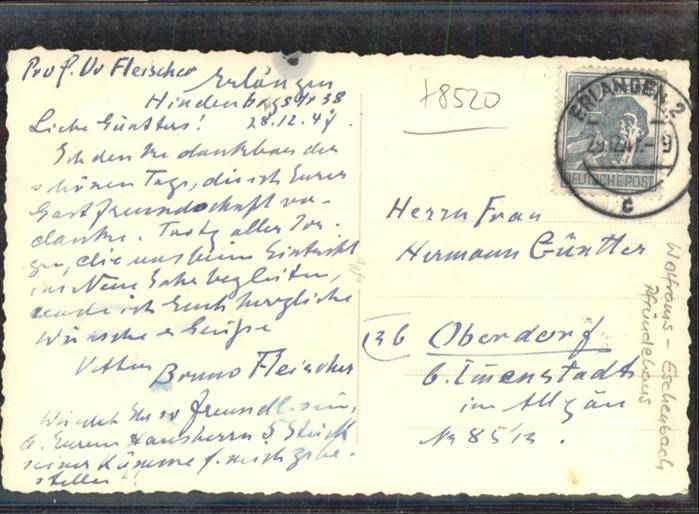 Prof. Dr Fleischer Erlangen
Hindenbgstr 38
Liebe Günthers! 28.12.47.
Ich denke dankbar der
schönen Tage, die ich Eurer
Gastfreundschaft ver-
danke. Trotz aller Sor-
gen, die uns beim Eintritt
ins Neue Jahr begleiten,
sende ich Euch herzliche
Wünsche u Grüße
Vetter Bruno Fleischer
Würdet Ihr so freundl. sein,
b. Eurem Hausherrn 5 Stück
seiner Kämme f. mich zu be-
stellen!!
+8520
ERLANGEN 2
29.12.47.- 9
c
DEUTSCHE POST
Herrn Frau
Hermann Günther
13b Oberdorf
b. Immenstadt
im Allgäu
No 85/13.
Wolframs - Eschenbach
Pfründehaus